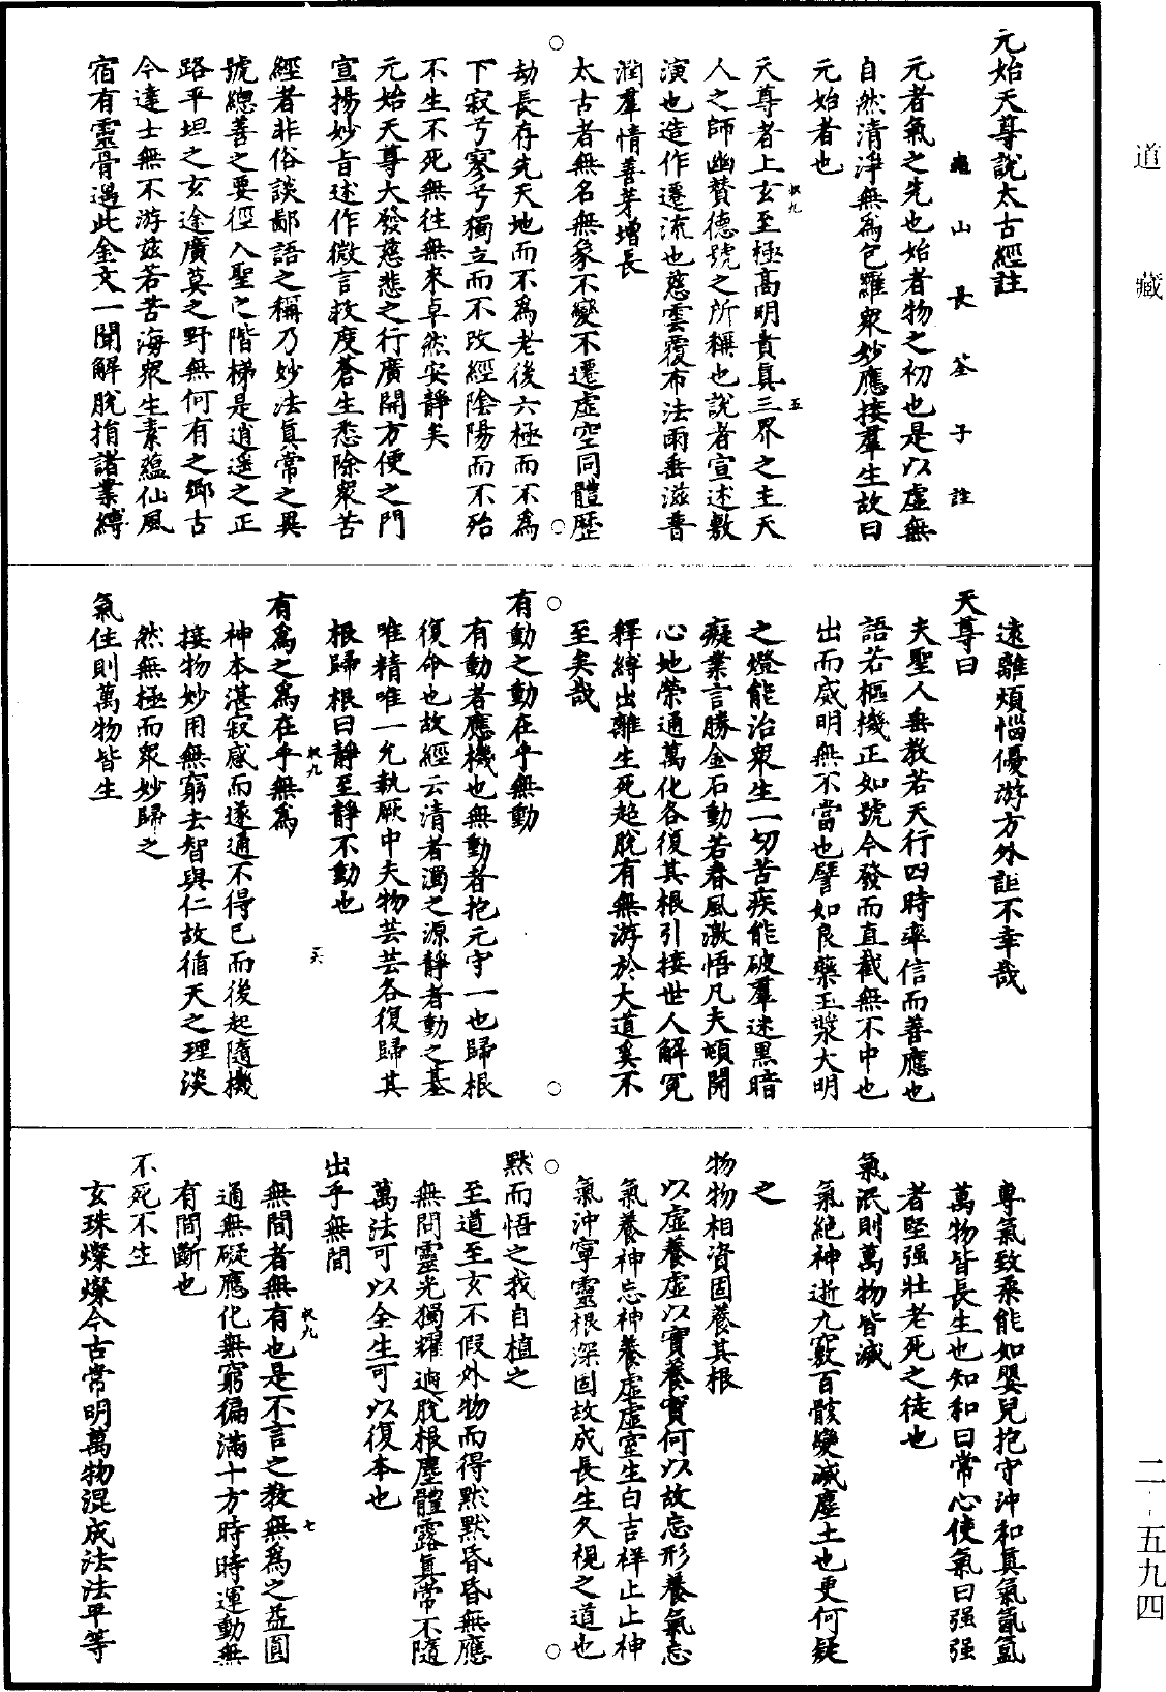 道藏
元始天尊說太古經註
龜山長筌子註
元者氣之先也始者物之初也是以虛無
自然清淨無為包羅眾妙應接羣生故曰
元始者也
天尊者上玄至極高明貴真三界之主天
人之師幽贊德號之所稱也說者宣述敷
演也造作遷流也慈雲覆布法雨垂滋普
潤羣情善芽增長
太古者無名無象不變不遷虛空同體歷
劫長存先天地而不為老後六極而不為
下寂兮寥兮獨立而不改經陰陽而不殆
不生不死無往無來卓然安靜矣
元始天尊大發慈悲之行廣開方便之門
宣揚妙旨述作微言救度蒼生悉除眾苦
經者非俗談鄙語之稱乃妙法真常之異
號總善之要徑入聖之階梯是逍遙之正
路平坦之玄途廣莫之野無何有之鄉古
今達士無不游茲若苦海眾生素蘊仙風
宿有靈骨遇此金文一聞解脫捐諸業縛
遠離煩惱優游方外詎不幸哉
天尊曰
夫聖人垂教若天行四時率信而善應也
語若樞機正如號令發而直截無不中也
出而咸明無不當也譬如良藥玉漿大明
之燈能治眾生一切苦疾能破羣迷黑暗
癡業言勝金石動若春風激悟凡夫頓開
心地榮通萬化各復其根引接世人解冤
釋縛出離生死超脫有無游於大道奚不
至矣哉
有動之動在乎無動
有動者應機也無動者抱元守一也歸根
復命也故經云清者濁之源靜者動之基
唯精唯一允執厥中夫物芸芸各復歸其
根歸根曰靜至靜不動也
有為之為在乎無為
神本湛寂感而遂通不得已而後起隨機
接物妙用無窮去智與仁故循天之理淡
然無極而眾妙歸之
氣住則萬物皆生
尊氣致柔能如嬰兒抱守沖和真氣氤氳
萬物皆長生也知和曰常心使氣曰强强
者堅强壯老死之徒也
氣泯則萬物皆滅
氣絕神逝九竅百骸變滅塵土也更何疑
之
物物相資固養其根
以虛養虛以實養實何以故忘形養氣忘
氣養神忘神養虛虛室生白吉祥止止神
氣沖寧靈根深固故成長生久視之道也
默而悟之我自植之
至道至玄不假外物而得默默昏昏無應
無問靈光獨耀迥脫根塵體露真常不隨
萬法可以全生可以復本也
出乎無間
無間者無有也是不言之教無為之益圓
通無礙應化無窮徧滿十方時時運動無
有間斷也
不死不生
玄珠燦燦今古常明萬物混成法法平等
二-五九四